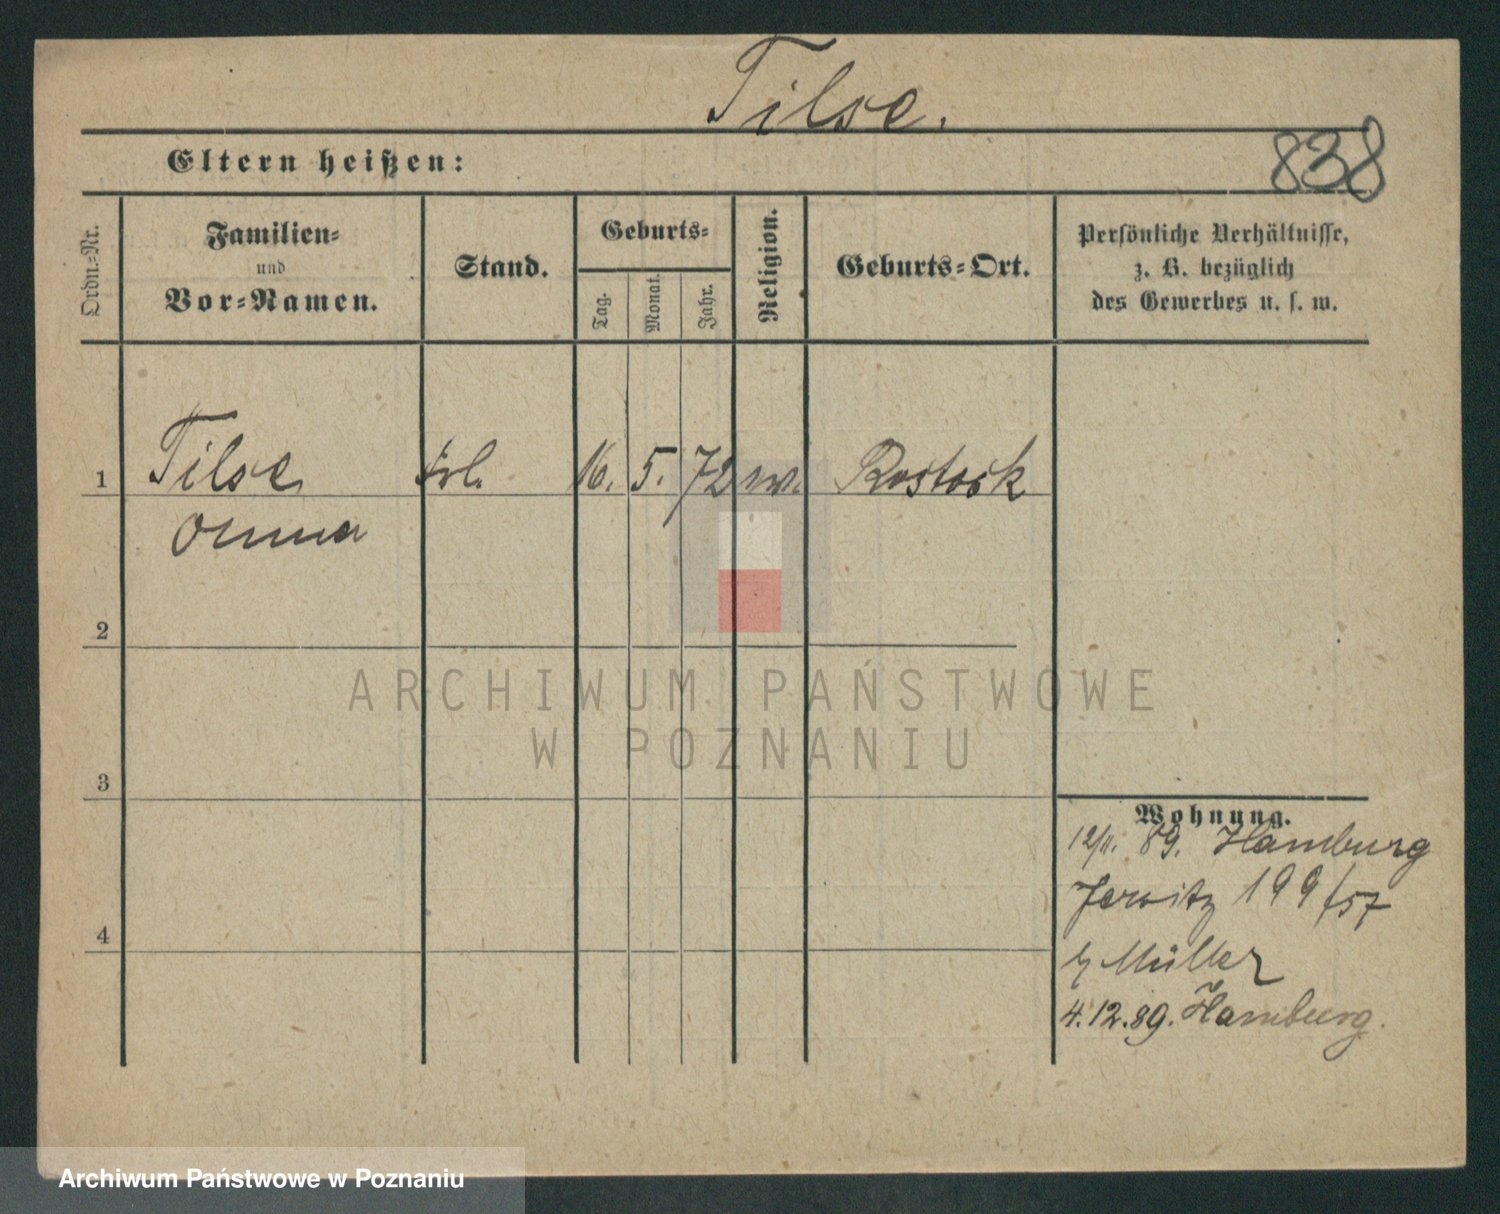 Tilse.
838
Eltern heißen:
Ordn.-Nr.
Familien-
und
Vor-Namen.
Stand.
Geburts-
Tag.
Monat.
Jahr.
Religion.
Geburts-Ort.
Persönliche Verhältnisse,
z. B. bezüglich
des Gewerbes u. s. w.
1 Tilse frl. 16. 5. 72 ev. Rostock
Anna
2
3
4
Wohnung.
12/11. 89. Hamburg
Jersitz 199/57
b/ Müller
4.12.89. Hamburg.
ARCHIWUM PAŃSTWOWE
W POZNANIU
Archiwum Państwowe w Poznaniu